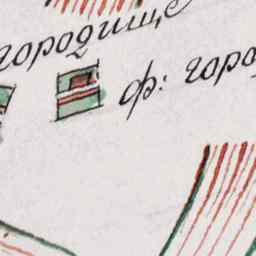 городище
ф: горо